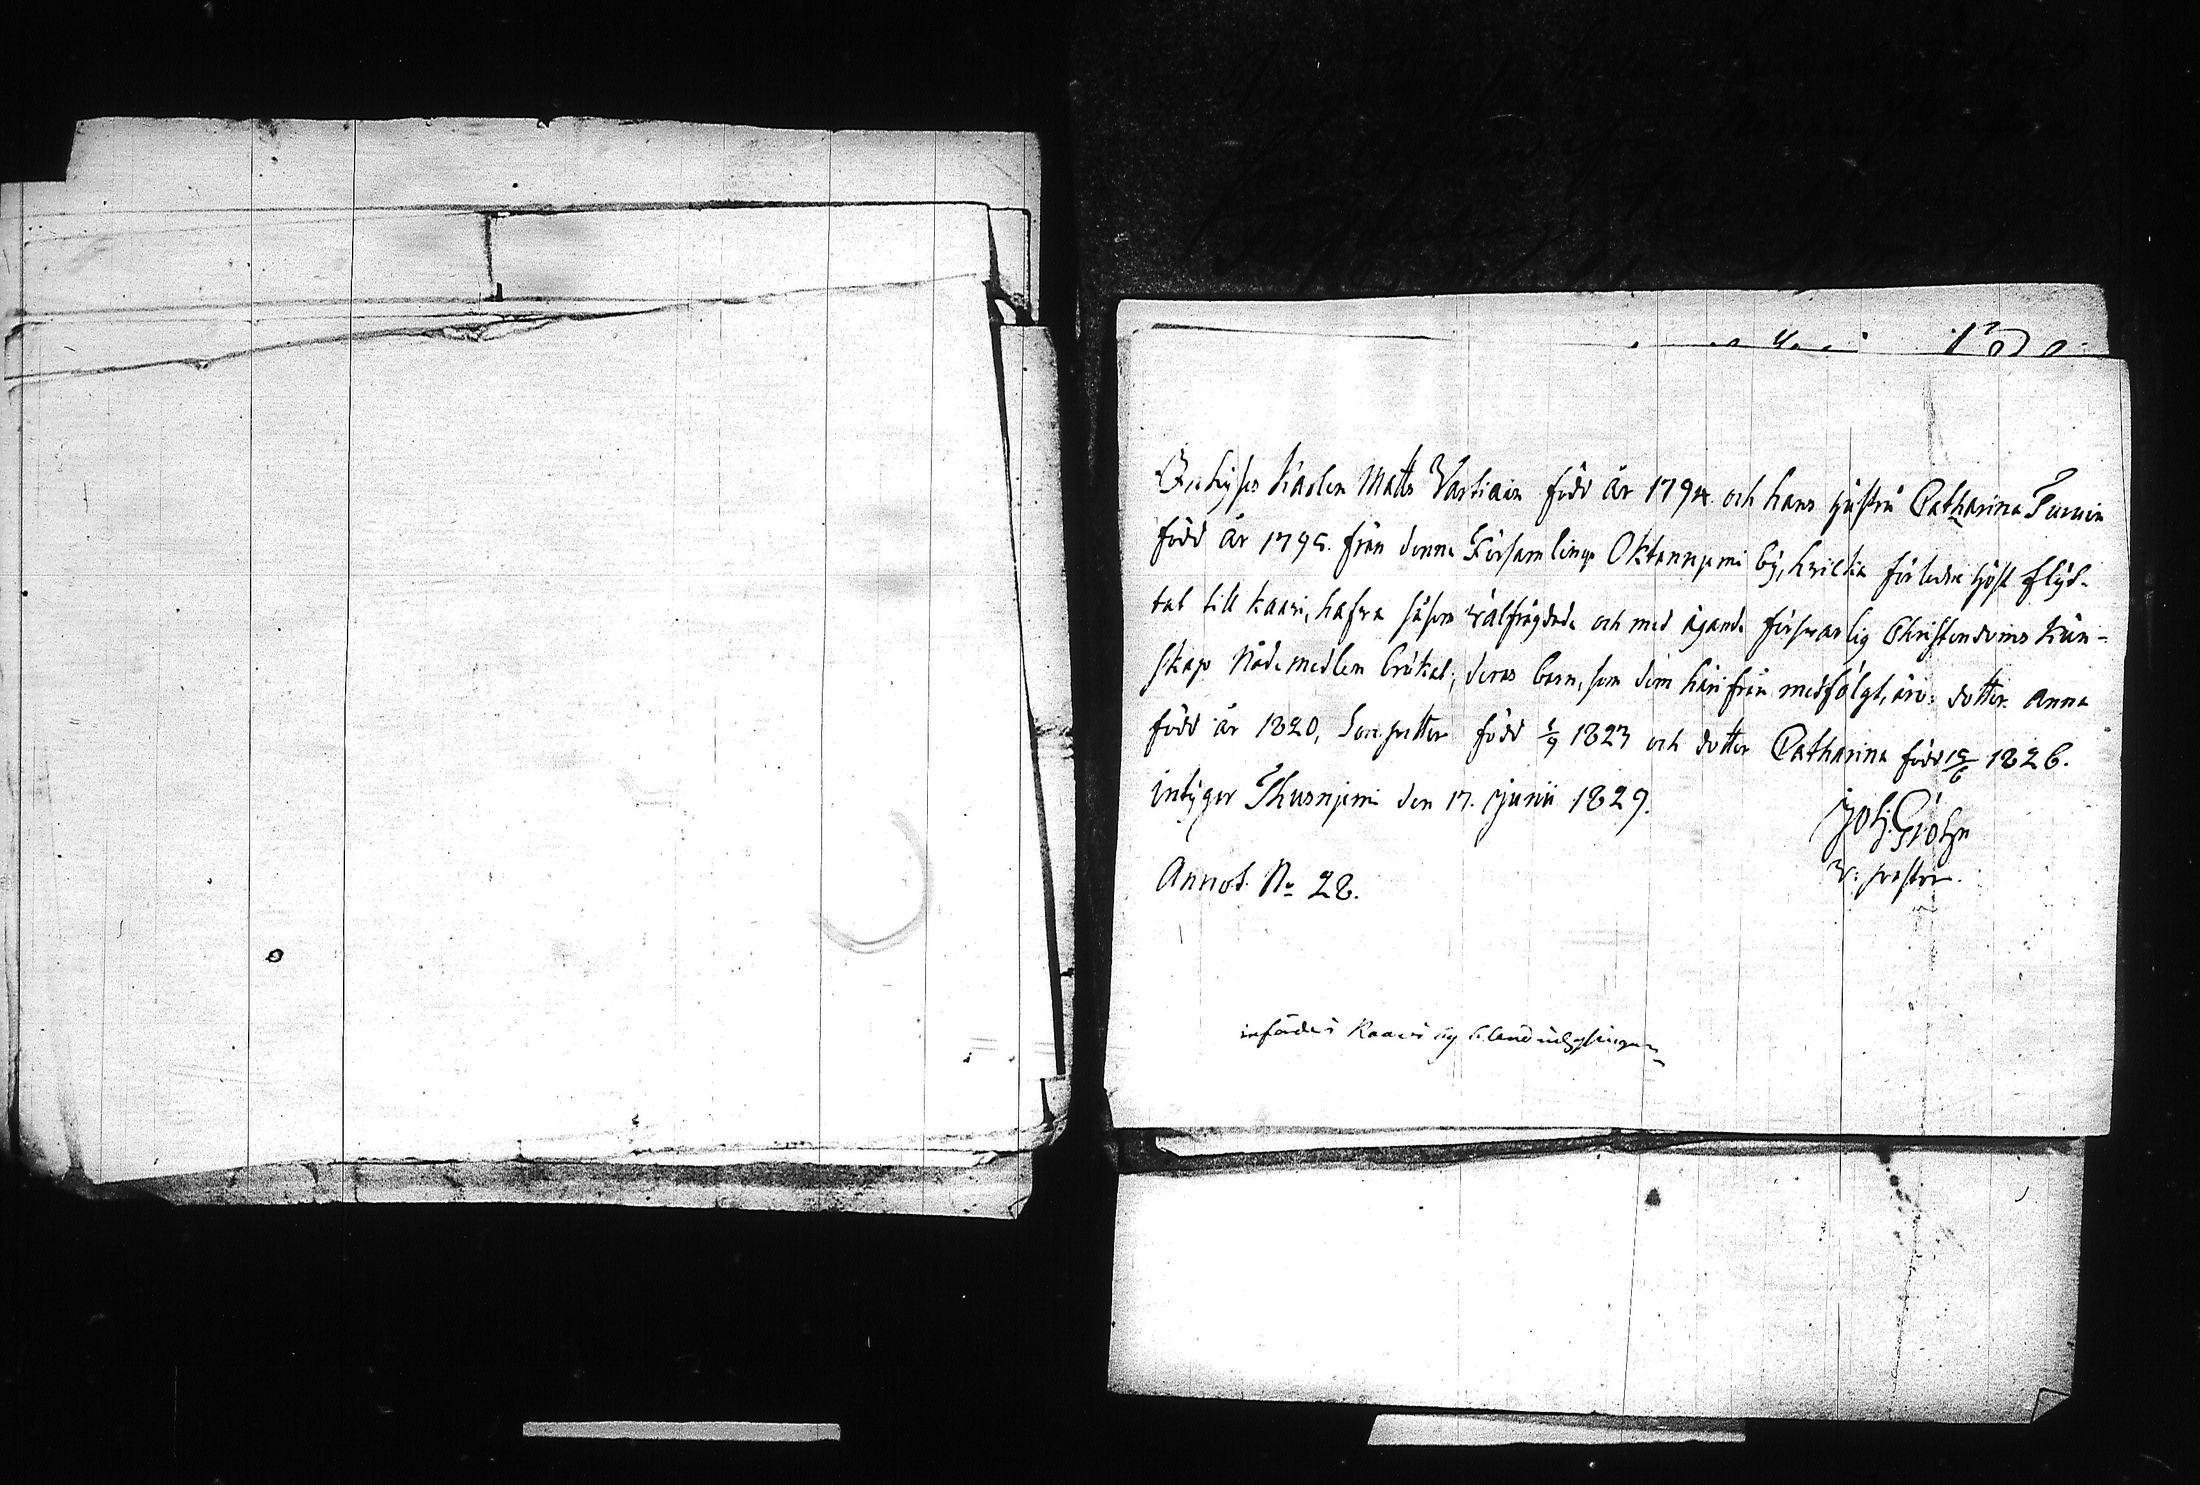 Inhyses Karlen Matts Vartiain född år 1794. och hans hustru Catharina Turuin
född år 1795. från denna Församlings Oktannjemi by, hvilka förleden höst flyt-
tat till Kaavi, hafva såsom wälfrägdade och med ägande försvarlig Christendoms kun-
skap Nådemedlen brukat; deras barn, som dem härifrån medfölgt, äro: dotter Anna
född år 1820, Son petter född 5/9 1823 och dotter Catharina född 15/6 1826.
intygar Thusnjemi den 17. Junii 1829.
Joh: Gröhn
v: pastor.
Annot. No 28.
införde i Kaavi